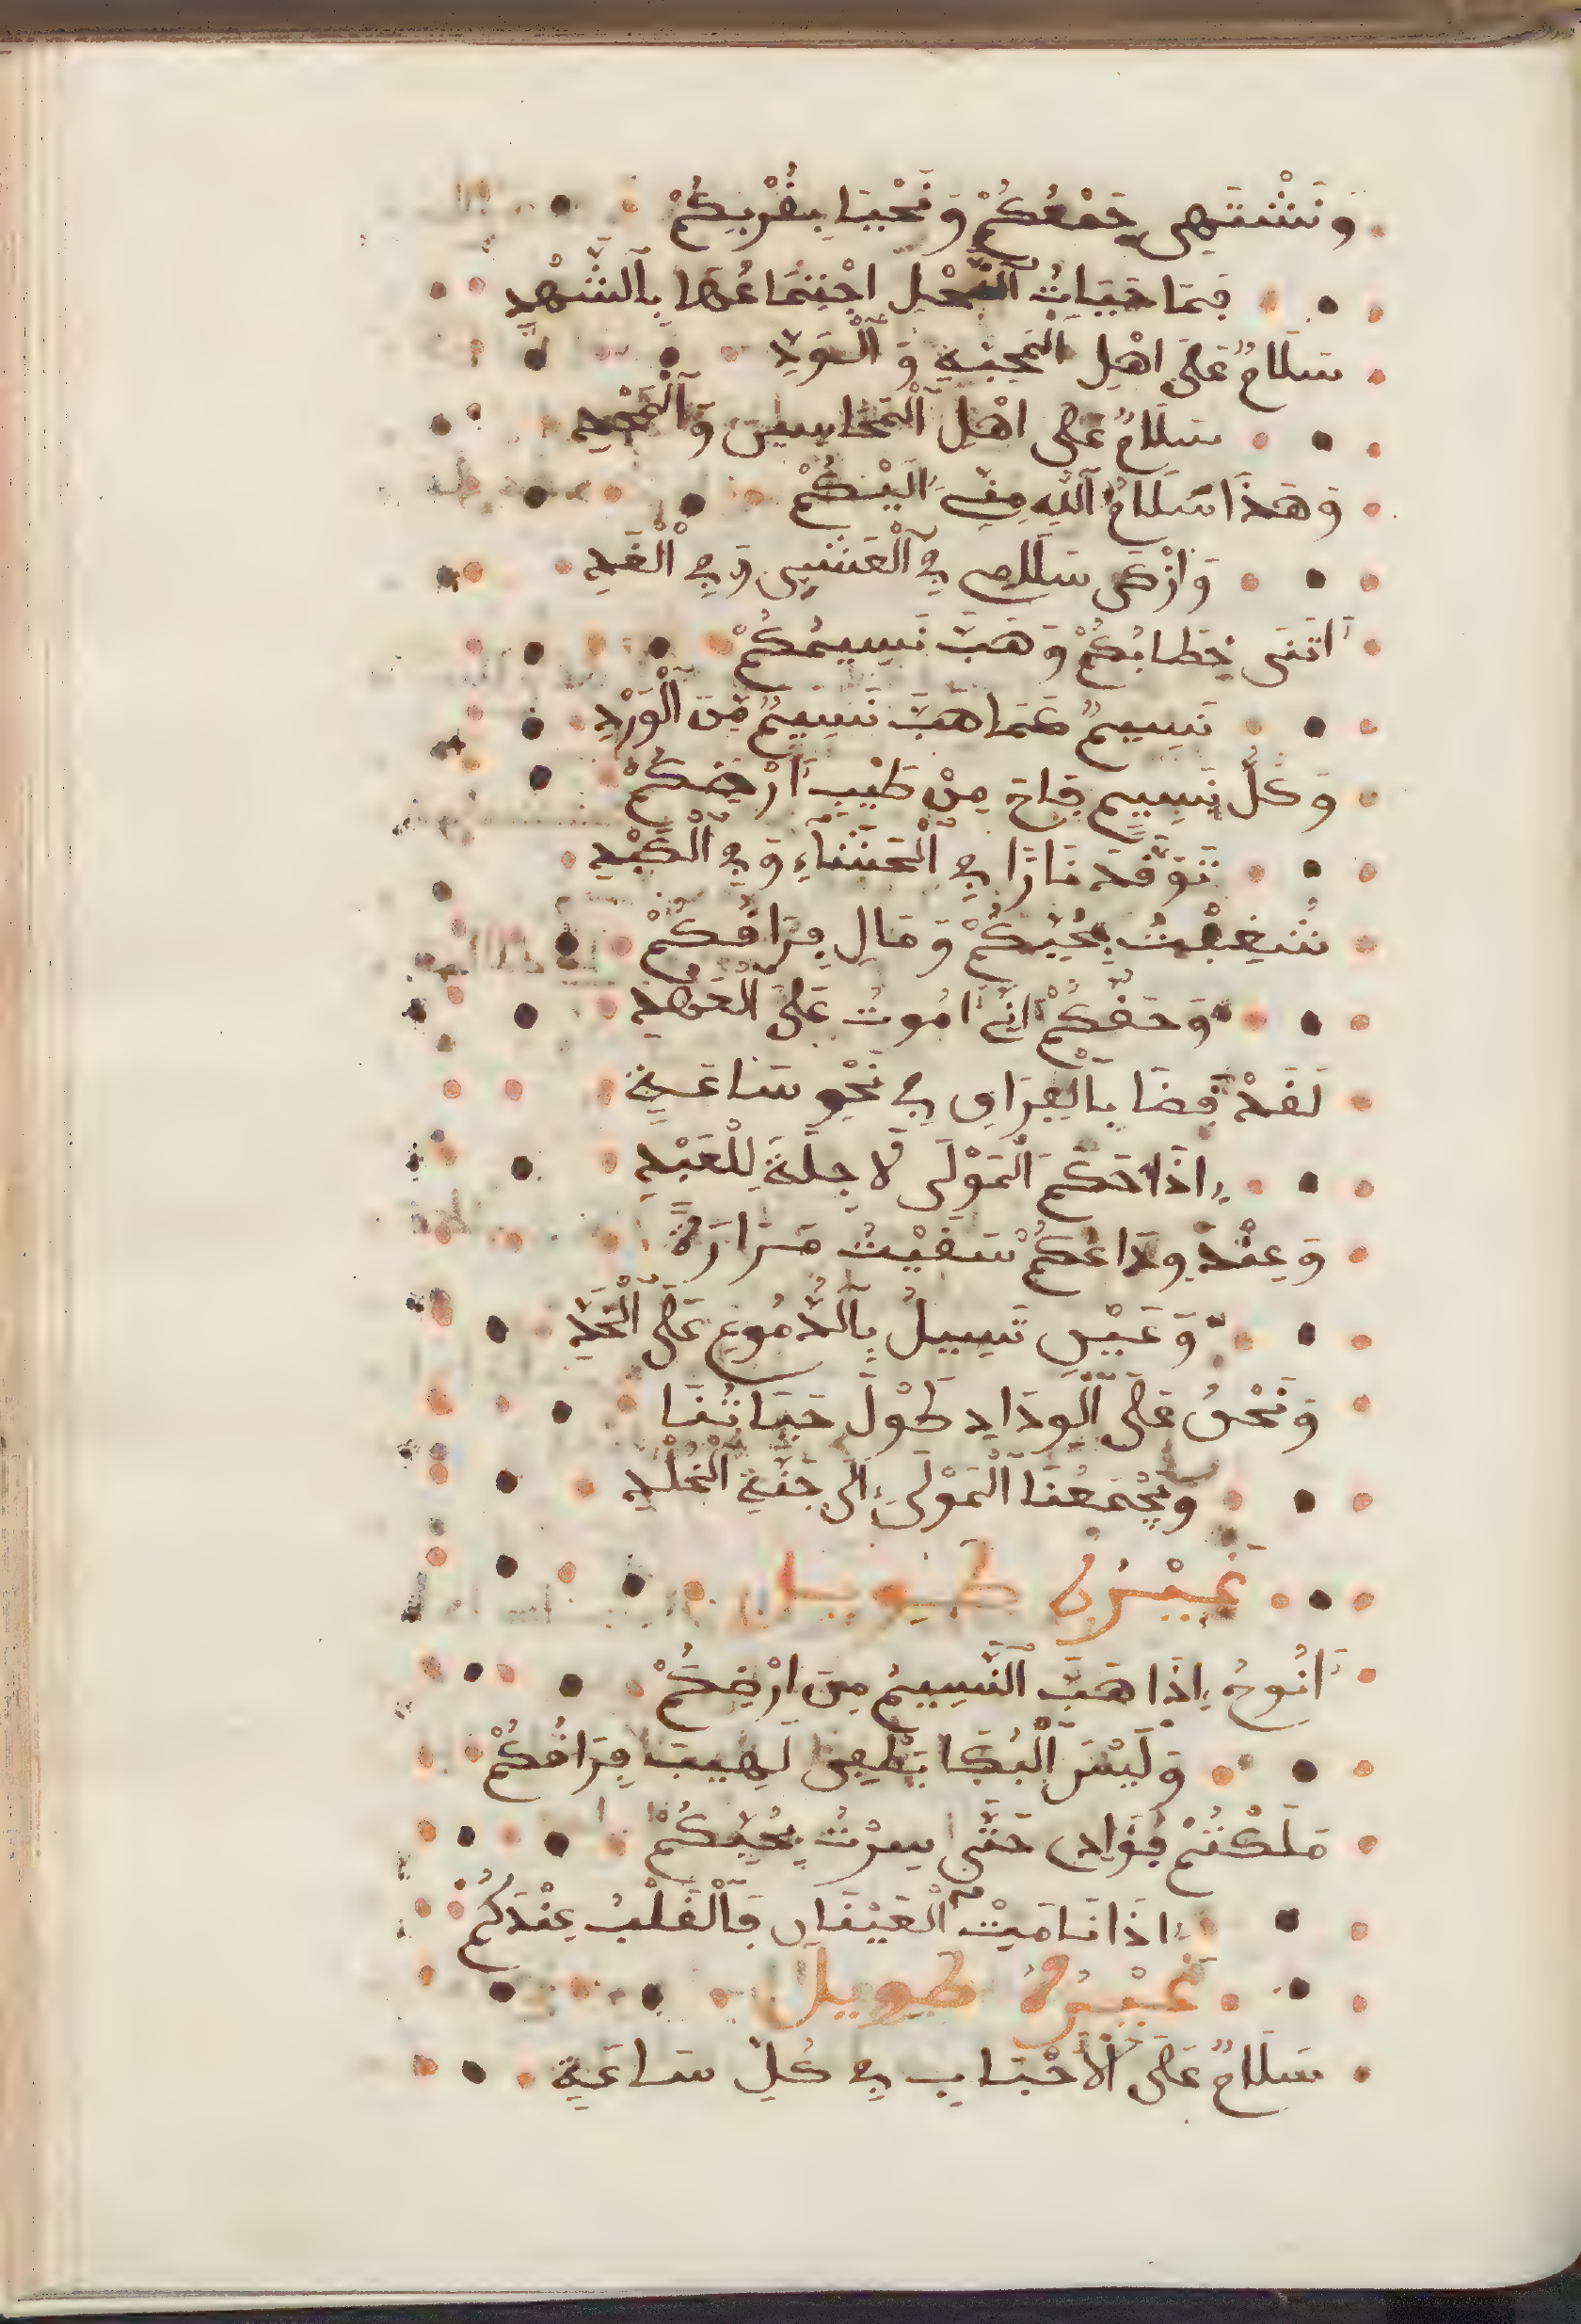 وَنَشْتَهِي جَمْعُكُمْ وَنَحْيَا بِقُرْبِكُمْ
فَمَا حَيَاتُ النَّحْلِ اجْتِمَاعُهَا بِالشَّهْدِ
سَلَامٌ عَلَى اهْلِ الْمَحَبَّةِ وَالْوَدِّ
سَلَامٌ عَلَى اهْلِ الْمَحَاسِنِ وَالْمَجْدِ
وَهَذَا سَلَامُ اللَّهِ مِنِّي إِلَيْكُمْ
وَازْكَى سَلَامِي فِي الْعَشِيِ وَفِي الْغَدِ
أَتَتْنِي خِطَابُكُمْ وَهَبَّ نَسِيمُكُمْ
نَسِيمٌ كَمَا هَبَّ نَسِيمٌ مِنَ الْوَرْدِ
وَكُلُّ نَسِيمٍ فَاحَ مِنْ طَيْبِ أَرْضِكُمْ
تَوَقَّدَ نَارًا فِي الْحَشَاءِ وَفِي الْكَبْدِ
شُغِفْتُ بِحُبِّكُمْ وَمَالِ فِرَاقُكُمْ
وَحَقِّكُمْ إِنِّي أَمُوتُ عَلَى الْعَهْدِ
لَقَدْ قَضَا بِالْفِرَاقِ فِي نَحْوِ سَاعَةٍ
إِذَا حَكَمَ الْمَوْلَى لَا حِلَةَ لِلْعَبْدِ
وَعِنْدَ وِدَاعُكُمْ سَقَيْتُ مَرَارَةً
وَعَيْنِي تَسِيلُ بِالدُّمُوعِ عَلَى الْخَدِّ
وَنَحْنُ عَلَى الْوِدَادِ طَوْلَ حَيَاتُنَا
وَيَجْمَعُنَا الْمَوْلَى إِلَى جَنَّةِ الْخُلْدِ
غَيْرُهُ طويل
أَنُوحُ إِذَا هَبَّ النَّسِيمُ مِنَ ارْضِكُمْ
وَلَيْسَ الْبُكَا يَطْفِي لَهِيبَ فِرَاقُكُمْ
مَلَكْتُمْ فُؤَادِي حَتَّى سِرْتُ بِحُبِّكُمْ
إِذَا نَامَتْ الْعَيْنَانِ فَالْقَلْبُ عِنْدَكُمْ
غَيْرُهُ طويل
سَلَامٌ عَلَى الْأَحْبَابِ فِي كُلِّ سَاعَةٍ